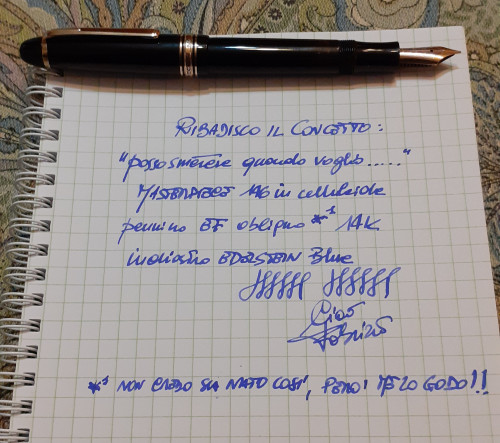 RIBADISCO IL CONCETTO:
"posso smettere quando voglio....."
MASTERPIECE 146 in celluloide
pennino EF obliquo *1 14K
inchiostro EDELSTEIN Blue
Ciao
Fabrizio
*1 NON CREDO SIA NATO COSI', PERO' ME LO GODO!!